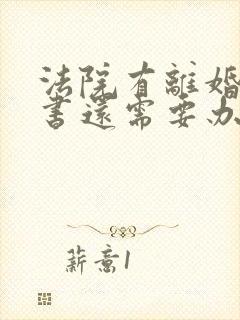 法院有離婚
書還需要办
薪意1